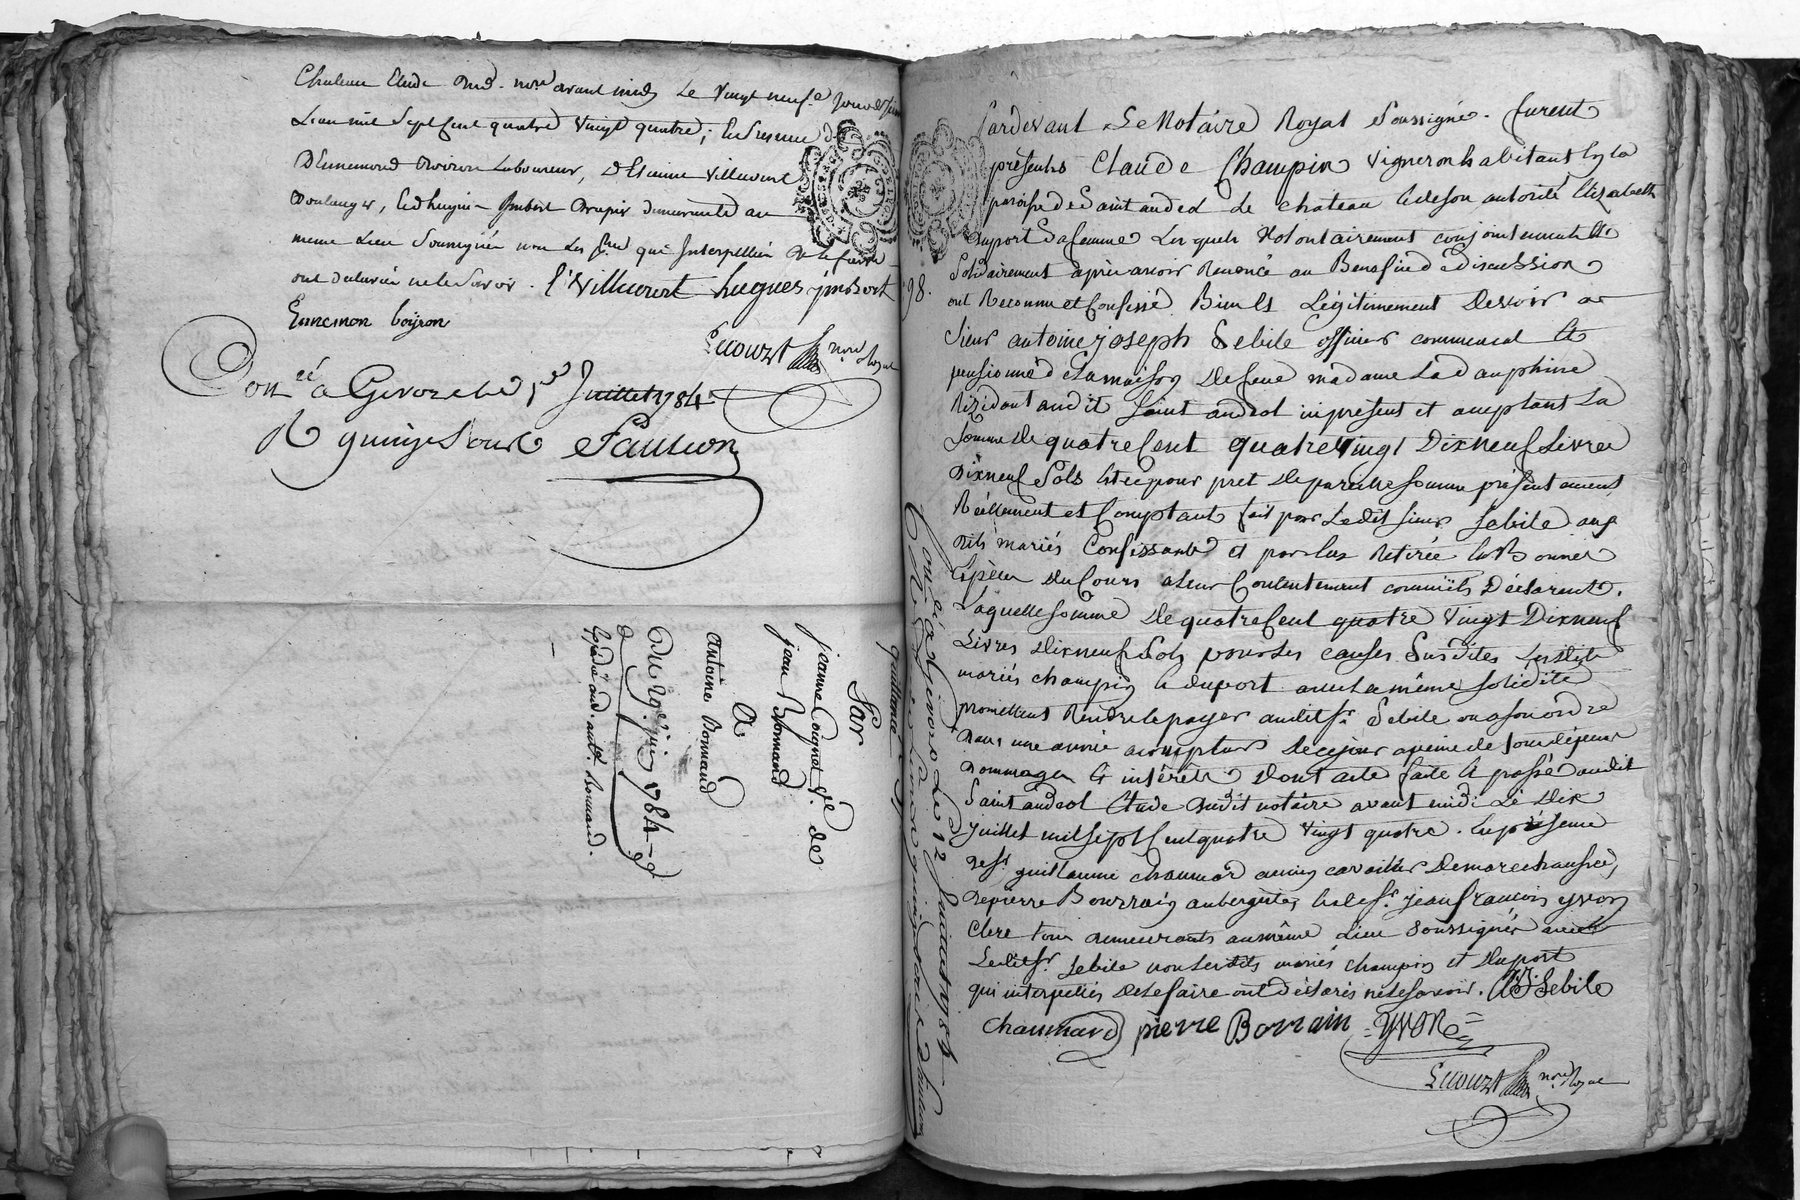 Chateau Etude dud. nore avant midy Le Vingt neufe Jour de Juin
L'an mil Sept Cent quatre Vingt quatre; En Presence
D'Ennemond Boiron Laboureur, d'Etienne Villecourt
Boulanger, Et d'hugue Imbert demeurants au
meme Lieu Soussignés non les qui Interpellée de le faire
ont declarée ne le Savoir. Villecourt hugues ymbert
Ennemon boyron
Lecourt nore Royal
Con.lé a Givors le 5e Juillet 1784
R quinze Sous Faucon
quittance
Par
jeanne Coignet fe. de
jean Bonnand
A
Antoine Bonnand
Du 29e. juin 1784
Expédié aud. ant. Bonnand.
98.
Pardevant Le Notaire Royal Soussigné. furent
présents Claude Champin Vigneron habitant en la
paroisse de Saint andeol de chateau et de son autorité Elizabeth
duport Sa femme Lesquels Volontairement conjointement et
Solidairement après avoir Renoncé au Benefice de discussion
ont Reconnu et Confessé Bien et Légitimement Devoir a
Sieur antoine joseph Sebile officier commensal et
pensionné de La maison De feue madame La dauphine
Résidant audit Saint andeol ici présent et acceptant La
Somme De quatre Cent quatre Vingt Dixneuf Livres
Dixneuf Sols et ce pour pret De pareille Somme présentement
Réellement et Comptant fait par Ledit Sieur Sebile aux
dits mariés Confessants et par Eux Retirée En Bonnes
Espèces Du Cours a Leur Contentement comm'ils Déclarent.
Laquelle Somme De quatre Cent quatre Vingt Dixneuf
Livres Dixneuf Sols pour Les causes Susdites Lesdits
mariés champin et duport avec La même Solidité
promettent Rendre et payer audit Sr. Sebile ou a son ordre
Dans une année a compter De ce jour a peine de tous dépens
Dommages et intérêts Dont acte fait et passé audit
Saint andeol Etude dudit notaire avant midi Le Dix
juillet mil Sept Cent quatre Vingt quatre. En présence
de Sr. guillaume chaumard ancien cavalier De marechaussée,
De pierre Bourrain aubergiste, et de Sr. jean francois yvon
Clerc tous demeurants au même Lieu Soussignés avec
Ledit Sr. Sebile non Lesdits mariés champin et Duport
qui interpellés De Le faire ont déclarés ne Le Savoir. AJ. Sebile
chaumard pierre Borrain yvon
Lecourt nore Royal
Controlé a Givors Le 12 Juillet 1784